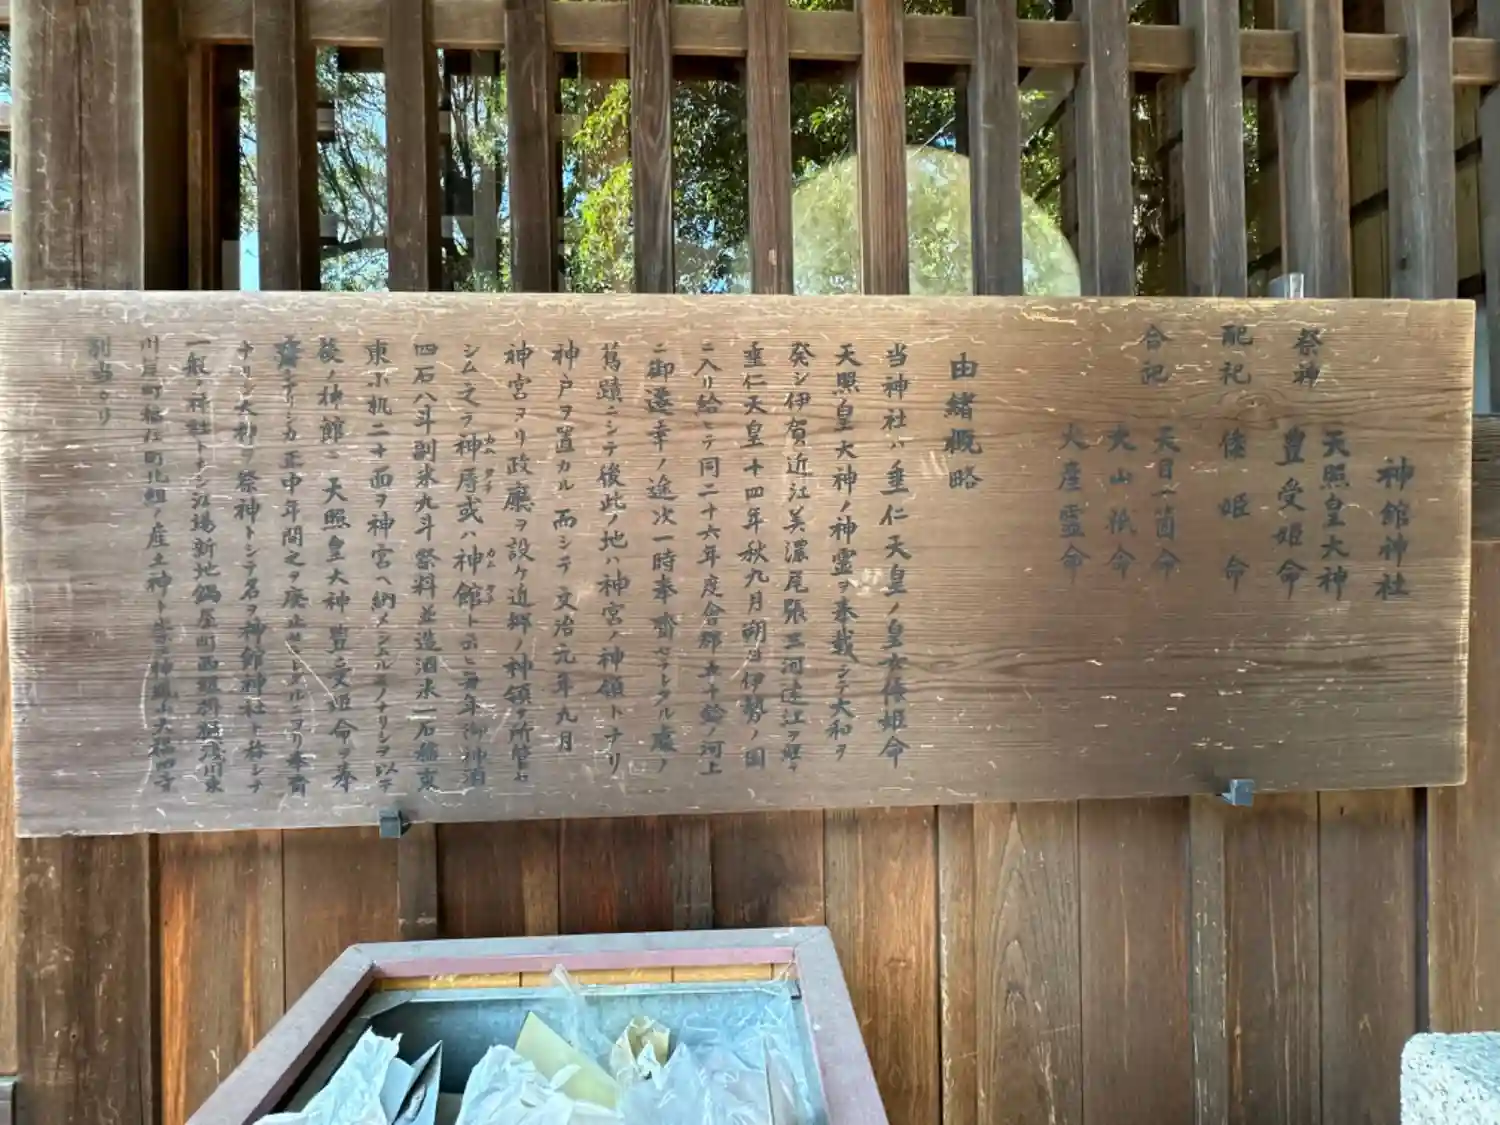 神館神社
祭神 天照皇大神
豊受姫命
配祀 倭姫命
合祀 天目一箇命
大山祇命
火産霊命
由緒概略
当神社ハ垂仁天皇ノ皇女倭姫命
天照皇大神ノ神霊ヲ奉載シテ大和ヲ
発シ伊賀近江美濃尾張三河遠江ヲ経テ
垂仁天皇十四年秋九月朔日伊勢ノ国
ニ入リ給ヒテ同二十六年度會郡五十鈴ノ河上
ニ御遷幸ノ途次一時奉齋セラレタル處ノ
舊蹟ニシテ後此ノ地ハ神宮ノ神領トナリ
神戸ヲ置カル而シテ文治元年九月
神宮ヨリ政廳ヲ設ケ近郷ノ神領ヲ所管セ
シム之ヲ神厝或ハ神館ト云ヒ毎年御神酒
四石八斗副米九斗祭料並造酒米一石稲束
東示机二十面ヲ神宮ヘ納メシムルモノナリシヲ以テ
後ノ神館ニ天照皇大神豊受姫命ヲ奉
齋シテアリシカ正中年間之ヲ廃止セラレタルニヨリ奉齋
ナリシ大神ヲ祭神トシテ名ヲ神館神社ト称シテ
一般ノ神社トナシ江場新地鍋屋町西
川原町稲荷町北組ノ産土神ト
別当タリ